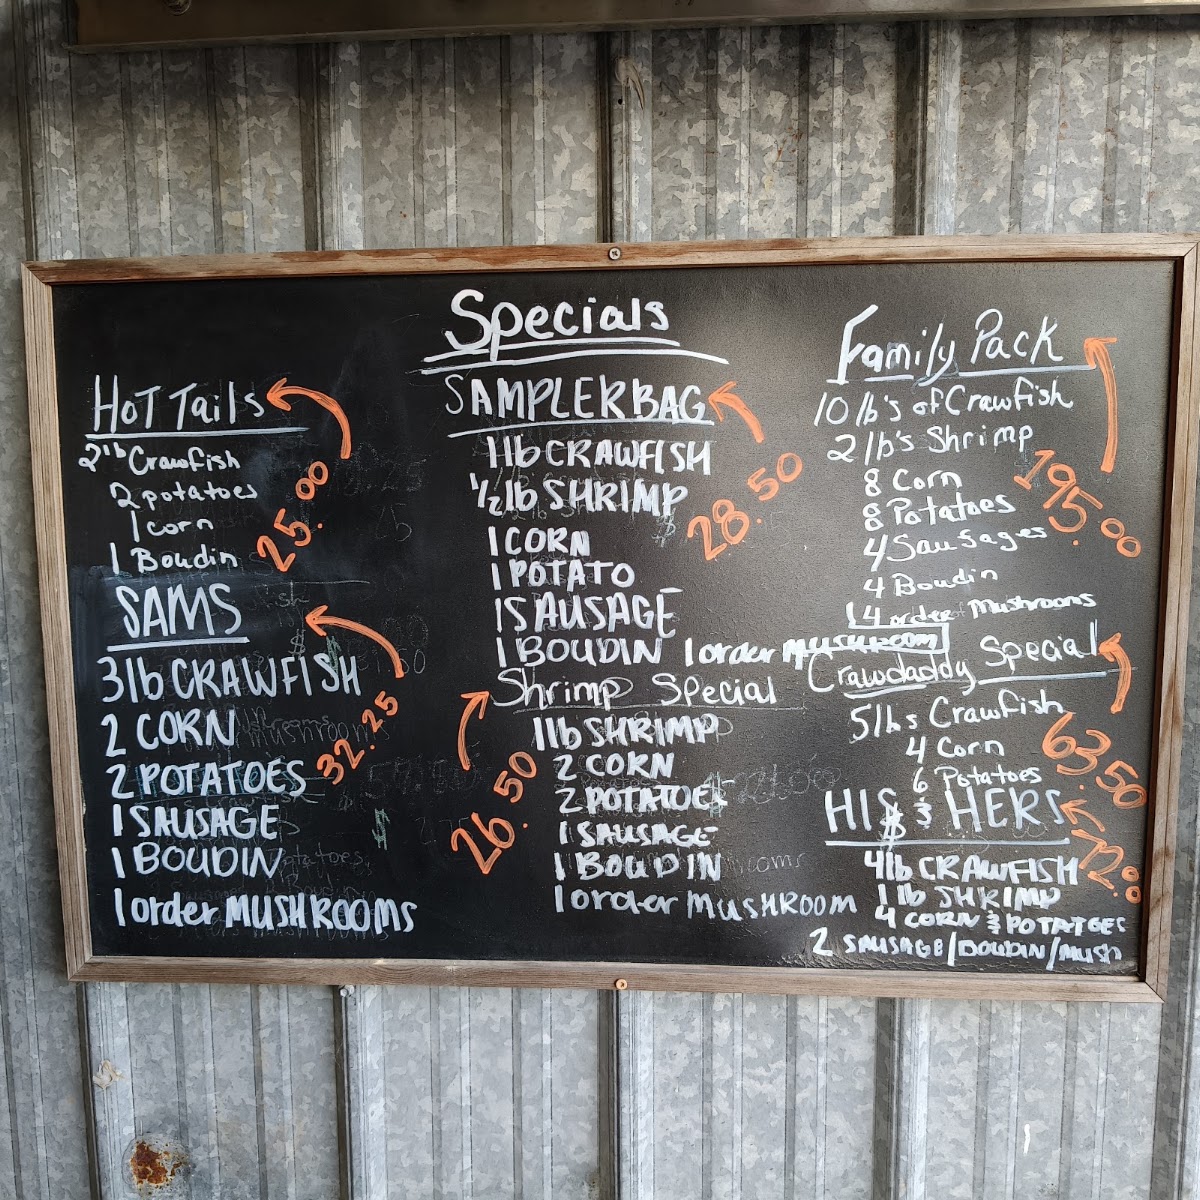 Specials
HOT Tails
2 lb Crawfish
2 potatoes
1 corn
1 Boudin
25.00
SAMS
3lb CRAWFISH
2 CORN
2 POTATOES
1 SAUSAGE
1 BOUDIN
1 order MUSHROOMS
32.25
SAMPLER BAG
1lb CRAWFISH
1/2 lb SHRIMP
1 CORN
1 POTATO
1 SAUSAGE
1 BOUDIN 1 order MUSHROOM
28.50
Shrimp Special
1lb SHRIMP
2 CORN
2 POTATOE
1 SAUSAGE
1 BOUDIN
1 order MUSHROOM
26.50
Family Pack
10 lb's of Crawfish
2 lb's Shrimp
8 Corn
8 Potatoes
4 Sausages
4 Boudin
4 order Mushrooms
195.00
Crawdaddy Special
5lbs Crawfish
4 Corn
6 Potatoes
63.50
HIS & HERS
4lb CRAWFISH
1 lb SHRIMP
4 CORN & POTATOES
2 SAUSAGE/BOUDIN/MUSH